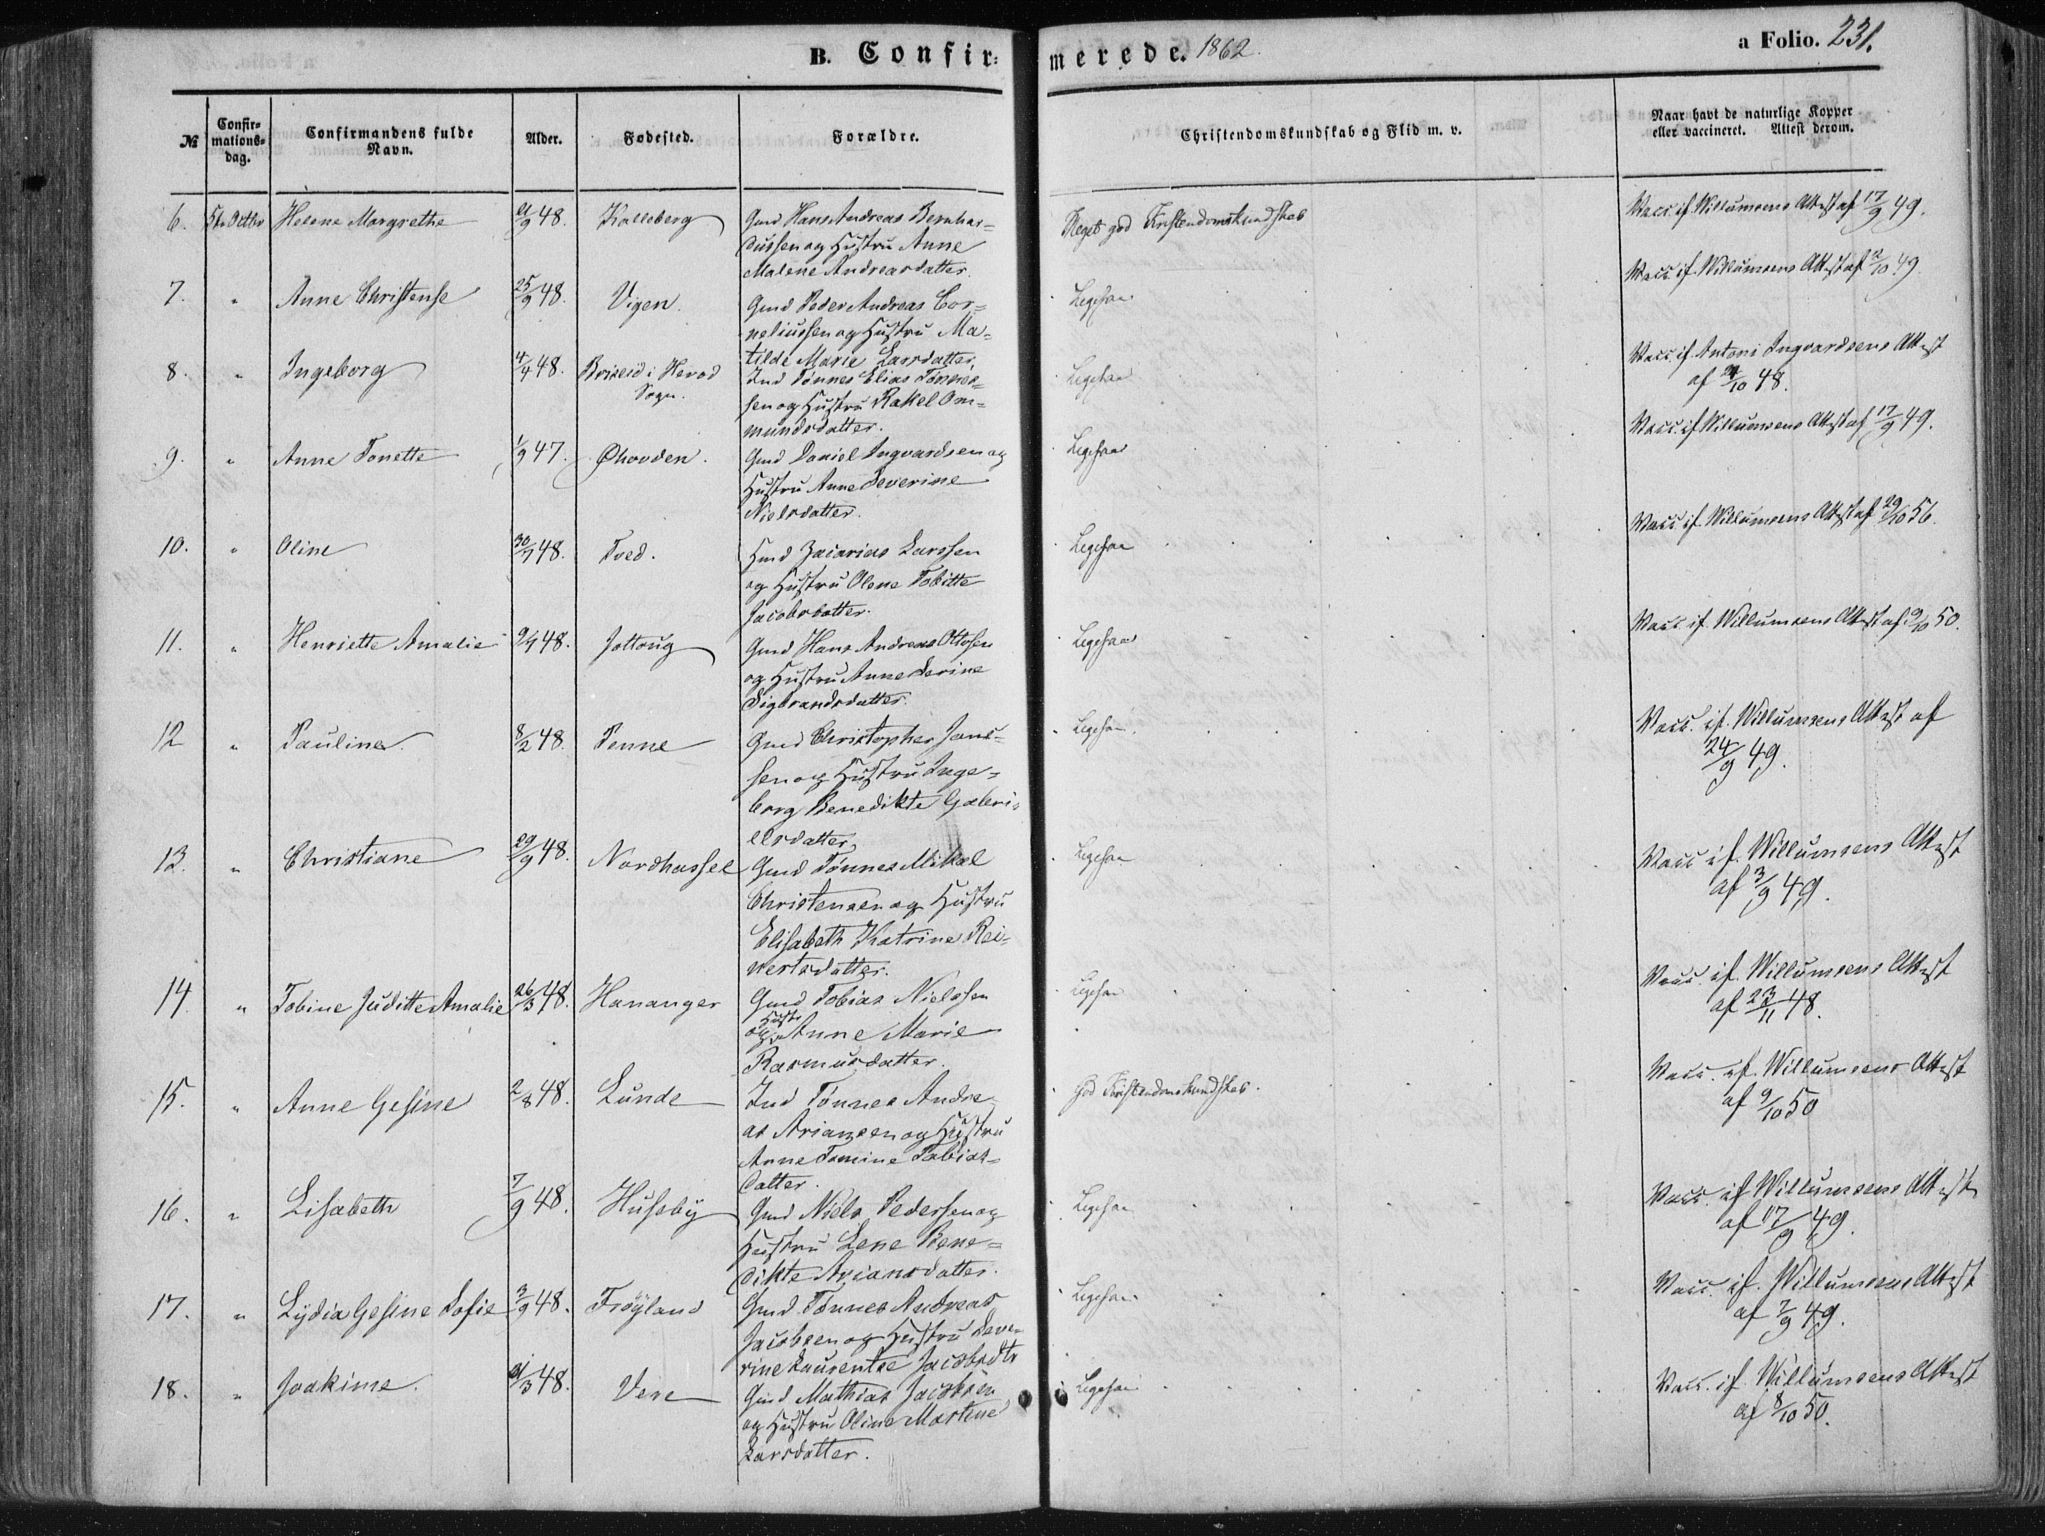 B. Confir=
merede. 1862.
a Folio. 231.
№
Confir-
mations-
dag.
Confirmandens fulde
Navn.
Alder.
Fødested.
Forældre.
Christendomskundskab og Flid m. v.
Naar havt de naturlige Kopper
eller vaccineret. Attest derom.
6. 5te Octbr Helene Margrethe 48. Kalleberg Gmd Hans Andreas Bernhar=
dussen og Hustru Anne
Malene Andreasdatter.
Meget god Kristendomskundskab
Vacc. if. Willumsens Attest af 17/9 49.
7. " Anne Christense 25/9 48. Vigen. Gmd Peder Andreas Cor=
neliussen og Hustru Ma=
tilde Marie Larsdatter.
Ligesaa
Vacc. if. Willumsens Attest af 2/10 49.
8. " Ingeborg 4/4 48. Briseid i Herod
Sogn.
Ind Tønnes Elias Tønnes=
sen og Hustru Rakel Om=
mundsdatter.
Ligesaa
Vacc. if. Antoni Ingvardsens Attest
af 24/10 48.
9. " Anne Tonette 1/9 47. Øhovden. Gmd Daniel Ingvardsen og
Hustru Anne Severine
Nielsdatter.
Ligesaa
Vacc. if. Willumsens Attest af 17/9 49.
10. " Oline 30/7 48. Tved. Hmd Zacarias Larssen
og Hustru Olene Tobitte
Jacobsdatter.
Ligesaa
Vacc. if. Willumsens Attest af 29/10 56.
11. " Henriette Amalie 48. Jøllestø Gmd Hans Andreas Ottosen
og Hustru Anne Serine
Sigbrandsdatter.
Ligesaa
Vacc. if. Willumsens Attest af 9/10 50.
12 " Pauline. 8/2 48. Penne Gmd Christopher Jans=
sen og Hustru Inge=
borg Benedikte Gabri=
elsdatter.
Ligesaa.
Vacc. if. Willumsens Attest af
24/9 49.
13. " Christiane 29/9 48. Nordhassel Gmd Tønnes Mikal
Christensen og Hustru
Elisabeth Katrine Rei=
nertsdatter.
Ligesaa
Vacc. if. Willumsens Attest
af 3/9 49.
14. " Tobine Juditte Amalie 26/3 48. Hananger Gmd Tobias Nielssen
og Hustru Anne Marie
Rasmusdatter.
Ligesaa
Vacc. if. Willumsens Attest
af 23/11 48.
15. " Anne Gesine 2/8 48. Lunde Ind Tønnes Andre
as Ariansen og Hustru
Anne Tomine Tobias=
datter.
God Kristendomskundskab.
Vacc. if. Willumsens Attest
af 9/10 50
16. " Lisabeth 7/9 48. Huseby Gmd Niels Pederssen og
Hustru Lene Bene=
dikte Ariansdatter.
Ligesaa
Vacc. if. Willumsens Attest
af 17/9 49.
17. " Lydia Gesine Sofie 3/9 48. Frøyland Gmd Tønnes Andreas
Jacobsen og Hustru Seve=
rine Laurentse Jacobsdtr
Ligesaa
Vacc. if. Willumsens Attest
af 7/9 49.
18. " Joakime. 48. Vere Gmd Mathias Jacobsen
og Hustru Oline Martine
Larsdatter.
Ligesaa
Vacc. if. Willumsens Attest
af 8/10 50.